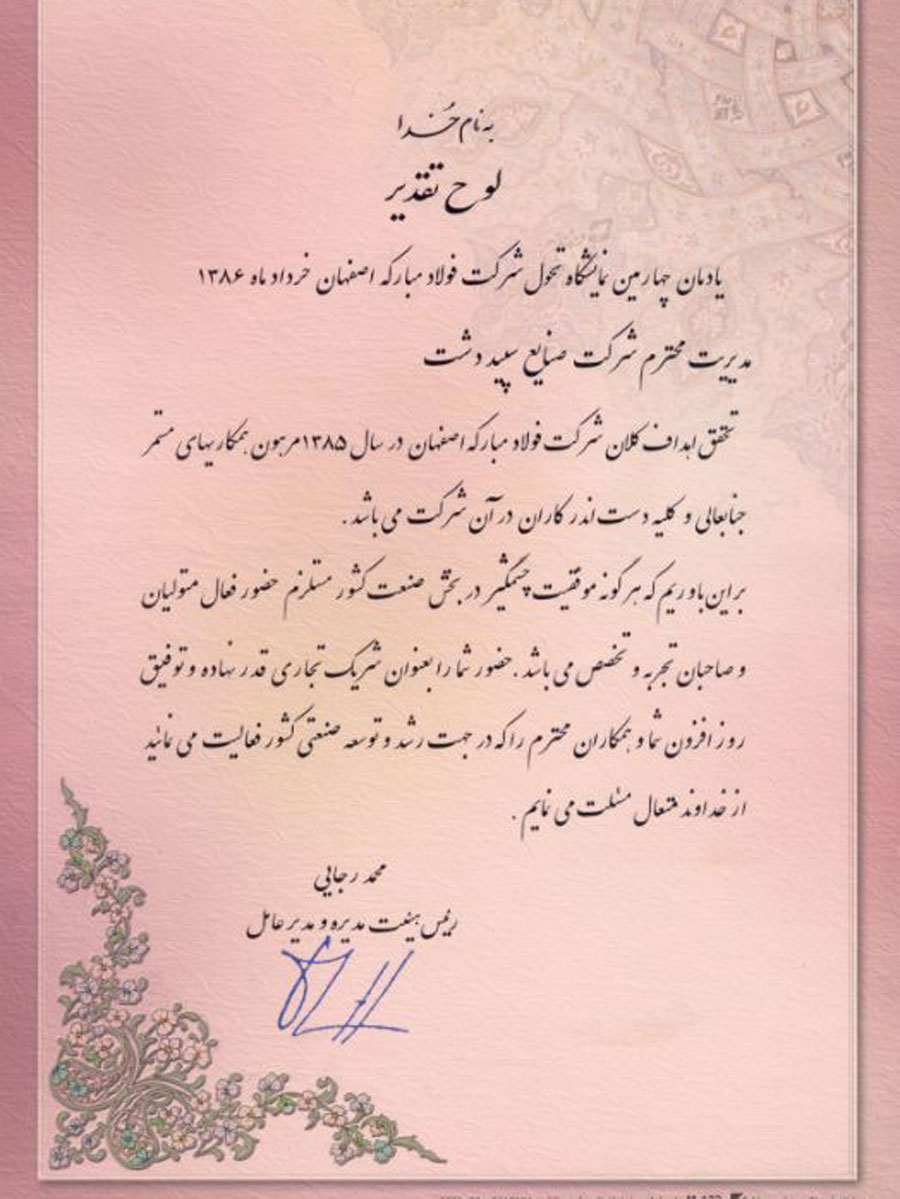 به نام خدا
لوح تقدیر
یادمان چهارمین نمایشگاه تحول شرکت فولاد مبارکه اصفهان خرداد ماه ۱۳۸۶
مدیریت محترم شرکت صنایع سپید دشت
تحقق اهداف کلان شرکت فولاد مبارکه اصفهان در سال ۱۳۸۵ مرهون همکاریهای مستمر
جنابعالی و کلیه دست اندر کاران در آن شرکت می باشد .
براین باوریم که هر گونه موفقیت چشمگیر در بخش صنعت کشور مستلزم حضور فعال متولیان
و صاحبان تجربه و تخصص می باشد . حضور شما را بعنوان شریک تجاری قدر نهاده و توفیق
روز افزون شما و همکاران محترم را که در جهت رشد و توسعه صنعتی کشور فعالیت می نمائید
از خداوند متعال مسئلت می نمایم .
محمد رجایی
رئیس هیئت مدیره و مدیر عامل